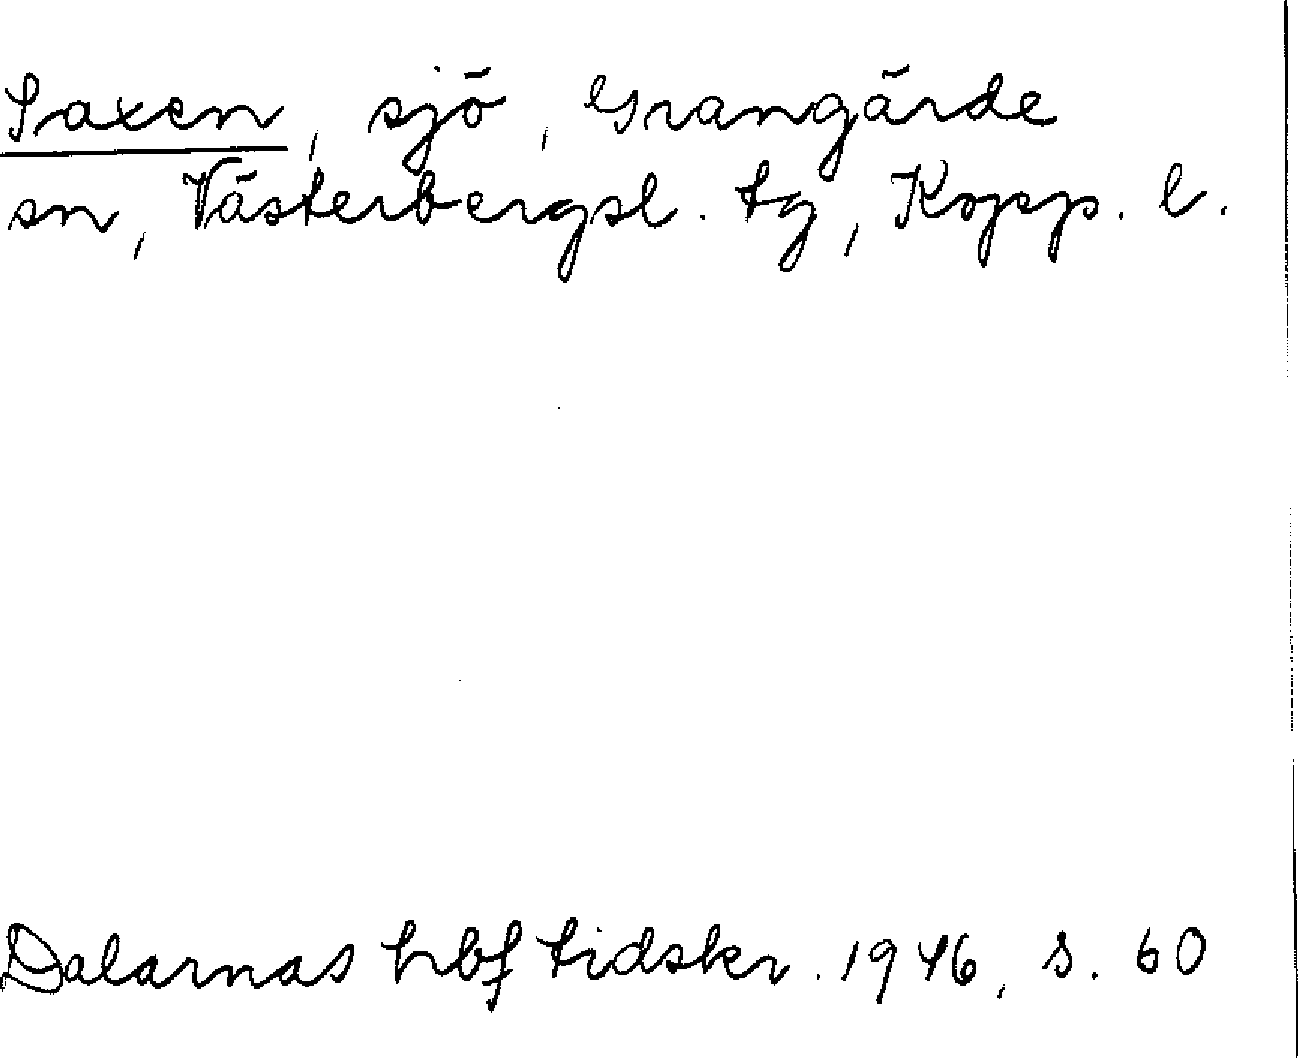 Saxen, sjö, Grangärde
sn, Västerbergsl. tg, Kopp. l.
Dalarnas hbf tidskr. 1946, s. 60